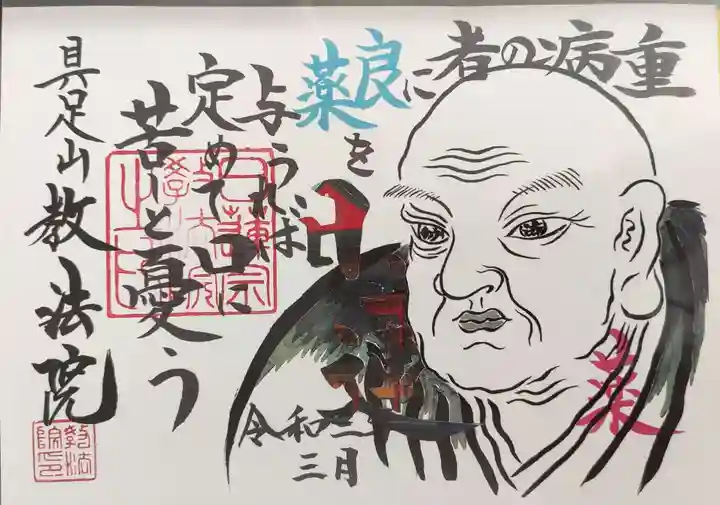 重病の者に
良薬を
与うれば
定めて口に
苦しと憂う
令和三年
三月
薬
具足山教法院